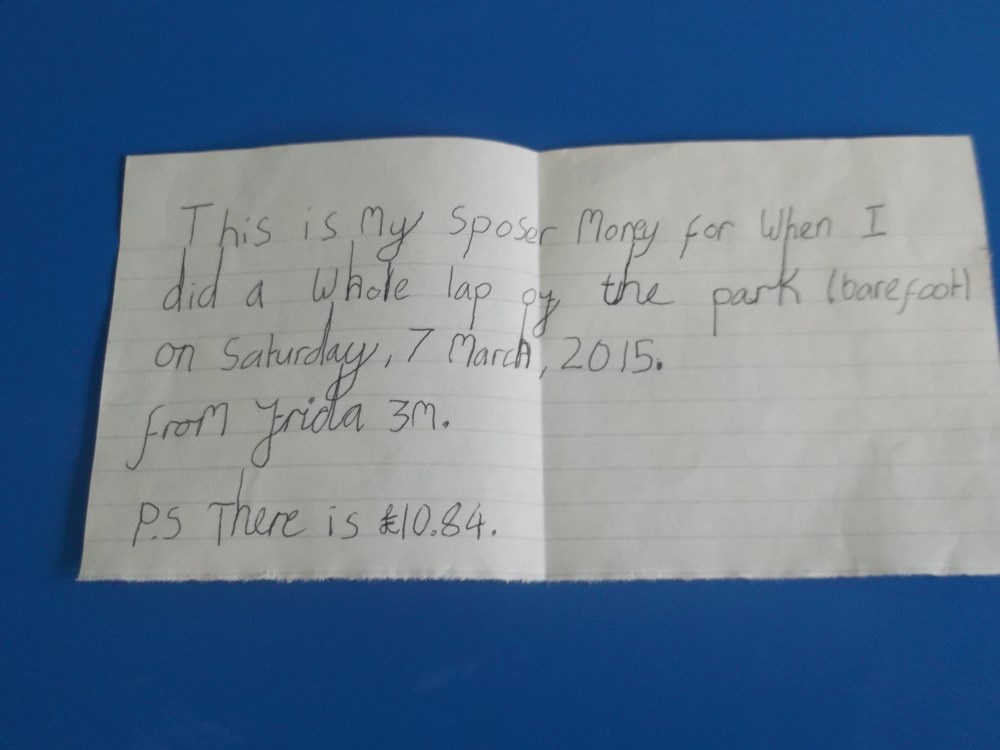 This is My Sposer Money for When I
did a Whole lap of the park (barefoot)
on Saturday, 7 March, 2015.
from Frida 3M.
P.S There is £10.84.